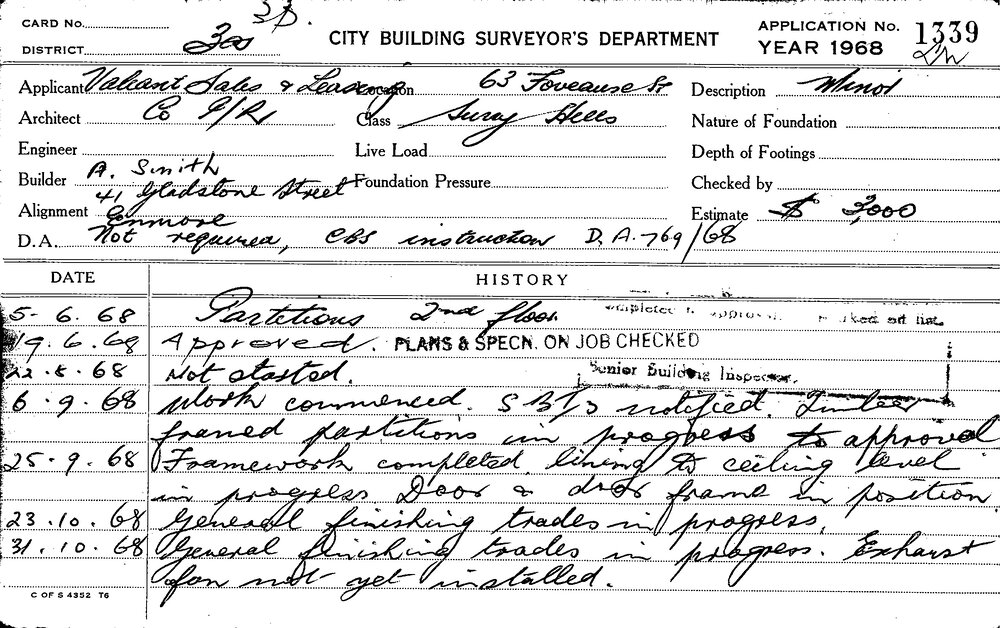 CARD No. 3B.
DISTRICT 3a
CITY BUILDING SURVEYOR'S DEPARTMENT
APPLICATION No. 1339
YEAR 1968
Applicant Valiant Sales & Leasing Location 63 Foveaux St Description Minor
Architect Co P/L Class Surry Hills Nature of Foundation
Engineer Live Load Depth of Footings
Builder A. Smith Foundation Pressure Checked by
41 Gladstone Street
Alignment Enmore Estimate $ 3,000
D.A. Not required, CBS instruction D.A. 769/68
DATE HISTORY
5. 6. 68 Partitions 2nd floor.
19. 6. 68 Approved. PLANS & SPECN. ON JOB CHECKED
22. 8. 68 Not started. Senior Building Inspector.
6. 9. 68 Work commenced. SBI's notified. Timber
framed partitions in progress to approval
25. 9. 68 Framework completed, lining to ceiling level
in progress Door & door frame in position.
23. 10. 68 General finishing trades in progress.
31. 10. 68 General finishing trades in progress. Exhaust
fan not yet installed.
C OF S 4352 T6